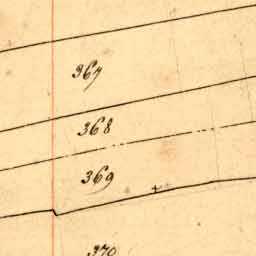 367
368
369
370